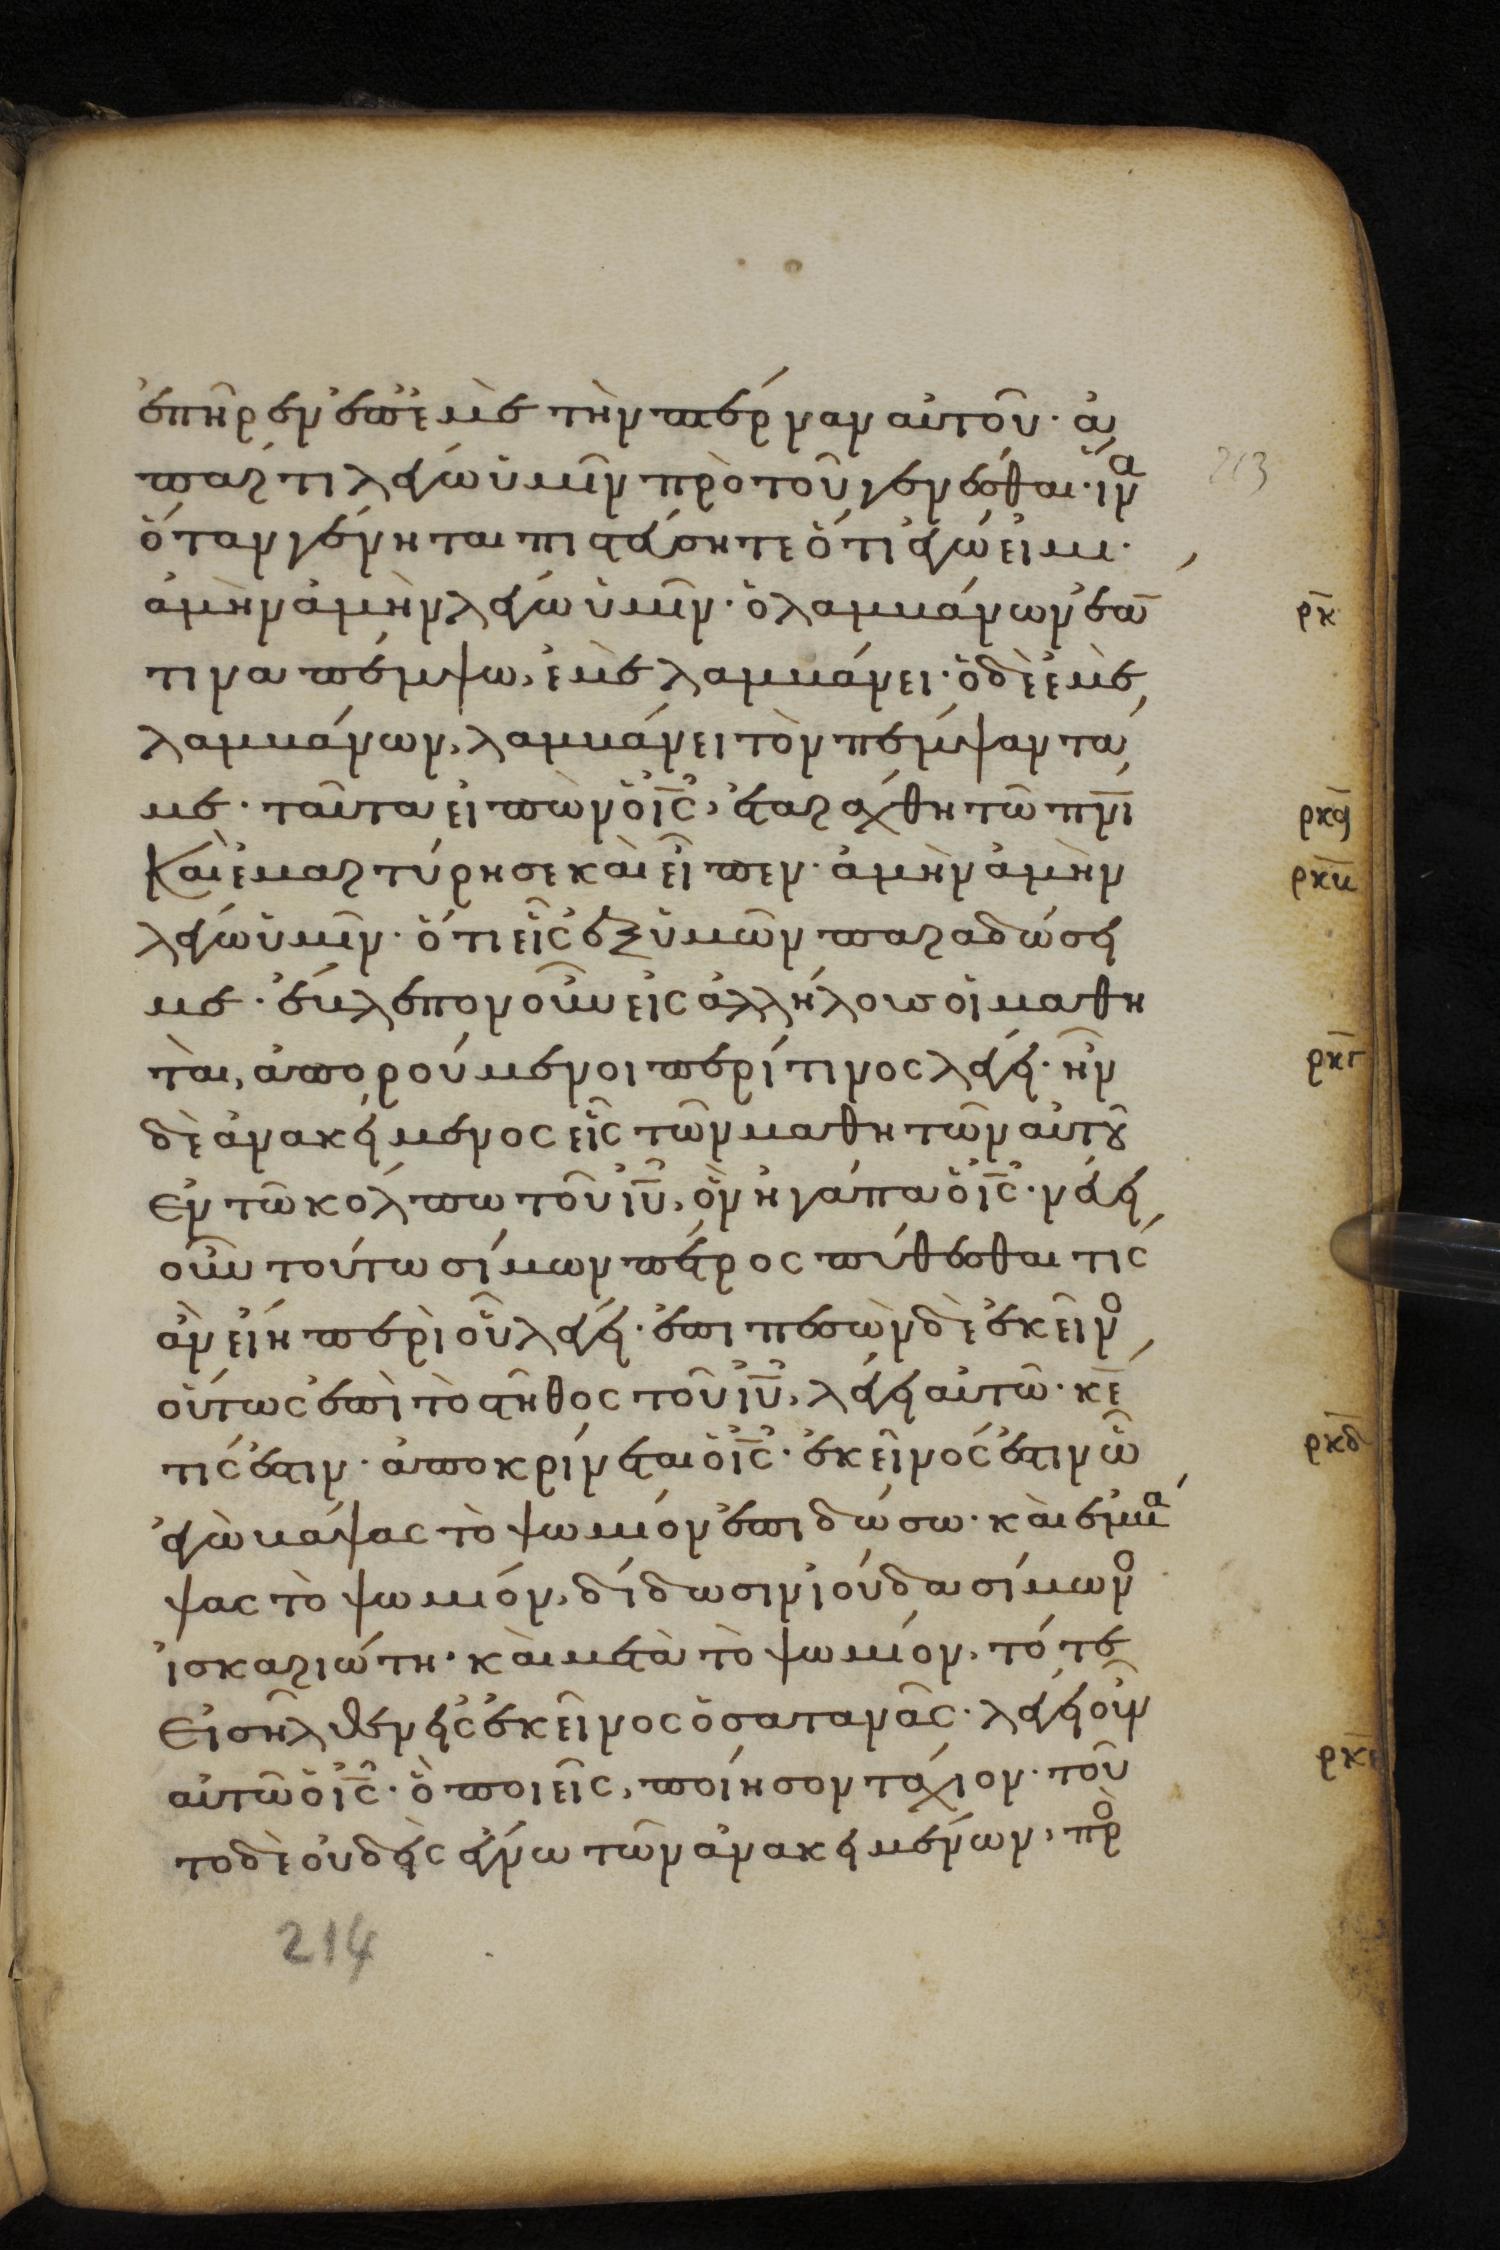 ἐπῆρεν ἐπ' ἐμὲ τὴν πτέρναν αὐτοῦ· ἀ
παρτι λέγω ὑμῖν πρὸ τοῦ γενέσθαι· ἵνα
ὅταν γένηται πιστεύσητε ὅτι ἐγώ εἰμι·
ἀμὴν ἀμὴν λέγω ὑμῖν· ὁ λαμβάνων ἐάν
ρκ
τινα πέμψω, ἐμὲ λαμβάνει· ὁ δὲ ἐμὲ
λαμβάνων, λαμβάνει τὸν πέμψαντά
με· ταῦτα εἰπὼν ὁ ις, ἐταράχθη τῶ πνι
ρκα
καὶ ἐμαρτύρησε καὶ εἶπεν· ἀμὴν ἀμὴν
ρκβ
λέγω ὑμῖν· ὅτι εἷς ἐξ ὑμῶν παραδώσει
με· ἔβλεπον οὖν εἰς ἀλλήλους οἱ μαθη
ταὶ, ἀπορούμενοι περί τινος λέγει· ἦν
ρκγ
δὲ ἀνακείμενος εἷς τῶν μαθητῶν αὐτοῦ
ἐν τῶ κόλπω τοῦ ιυ, ὃν ἠγάπα ὁ ις· νεύει
οὖν τούτω σίμων πέτρος πύθεσθαι τίς
ἂν εἴη περὶ οὗ λέγει· ἐπιπεσὼν δὲ ἐκεῖνο
οὕτως ἐπὶ τὸ στῆθος τοῦ ιυ, λέγει αὐτῶ· κε
τίς ἐστιν· ἀποκρίνεται ὁ ις· ἐκεῖνός ἐστιν ὧ
ρκδ
ἐγὼ βάψας τὸ ψωμίον ἐπιδώσω· καὶ ἐμβά
ψας τὸ ψωμίον, δίδωσιν ἰούδα σίμωνο
ἰσκαριώτη· καὶ μετὰ τὸ ψωμίον, τότε
εἰσῆλθεν εἰς ἐκεῖνος ὁ σατανᾶς· λέγει οὖν
αὐτῶ ὁ ις· ὃ ποιεῖς, ποίησον τάχιον· τοῦ
ρκε
το δὲ οὐδεὶς ἔγνω τῶν ἀνακειμένων, πρὸ
213
214